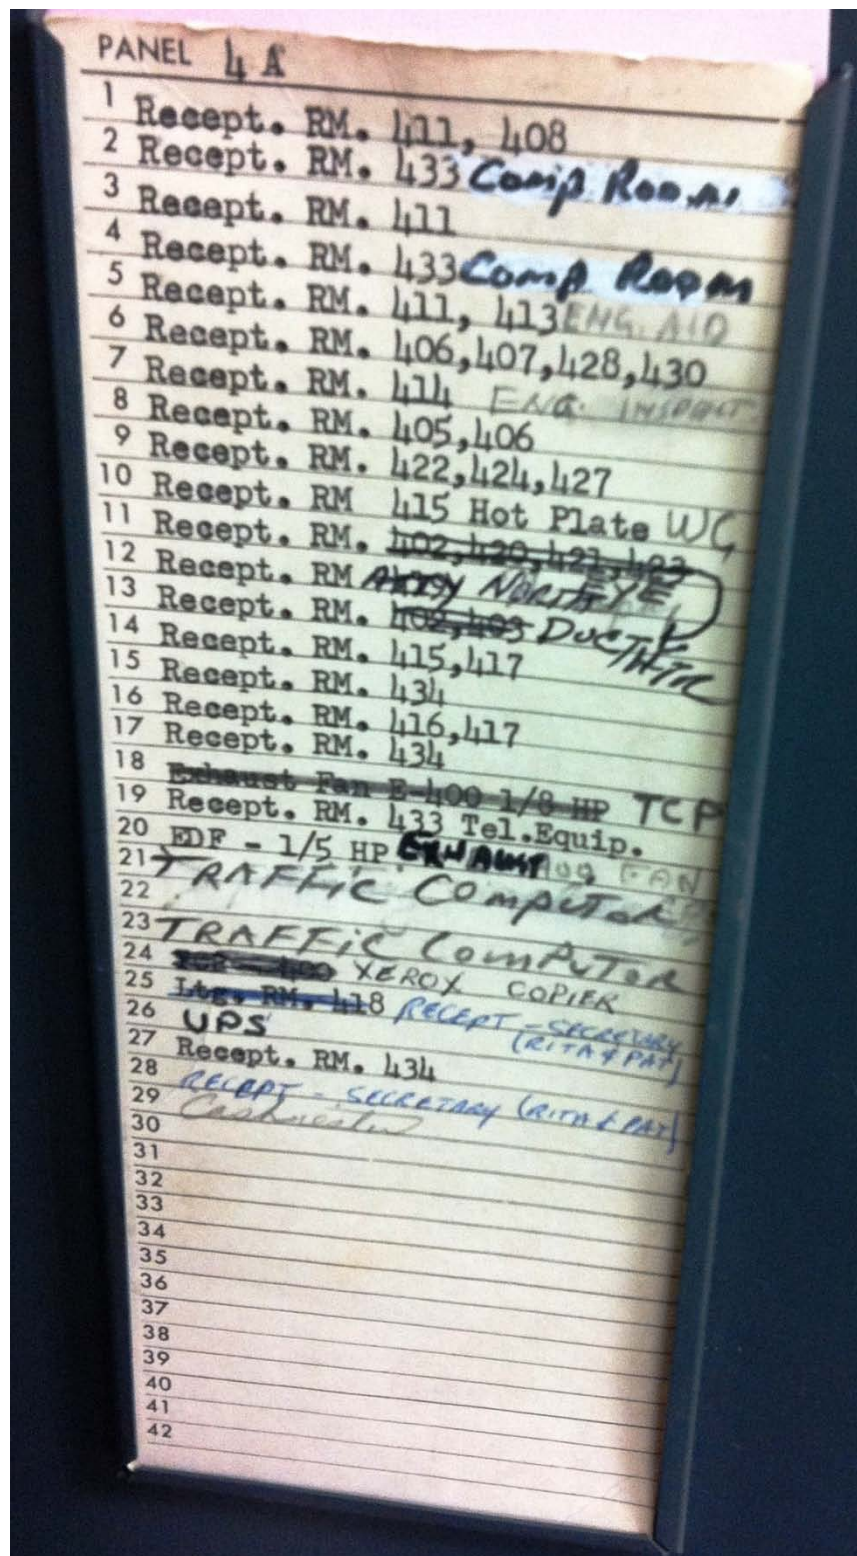 PANEL 4 A
1 Recept. RM. 411, 408
2 Recept. RM. 433 Comp Room
3 Recept. RM. 411
4 Recept. RM. 433 Comp Room
5 Recept. RM. 411, 413 ENG. AID
6 Recept. RM. 406,407,428,430
7 Recept. RM. 414 ENG. INSPECT
8 Recept. RM. 405,406
9 Recept. RM. 422,424,427
10 Recept. RM 415 Hot Plate WC
11 Recept. RM. 402,420,421,423
12 Recept. RM NORTH EYE
13 Recept. RM. 402,403 DUCT HTR
14 Recept. RM. 415,417
15 Recept. RM. 434
16 Recept. RM. 416,417
17 Recept. RM. 434
18 Exhaust Fan E-400 1/8 HP TCP
19 Recept. RM. 433 Tel.Equip.
20 EDF - 1/5 HP EXHAUST FAN
21 TRAFFIC COMPUTOR
22
23 TRAFFIC COMPUTOR
24 XEROX COPIER
25 Ltg. RM. 418 RECEPT - SECRETARY
(RITA & PAT)
26 UPS
27 Recept. RM. 434
28 RECEPT - SECRETARY (RITA & PAT)
29
30
31
32
33
34
35
36
37
38
39
40
41
42